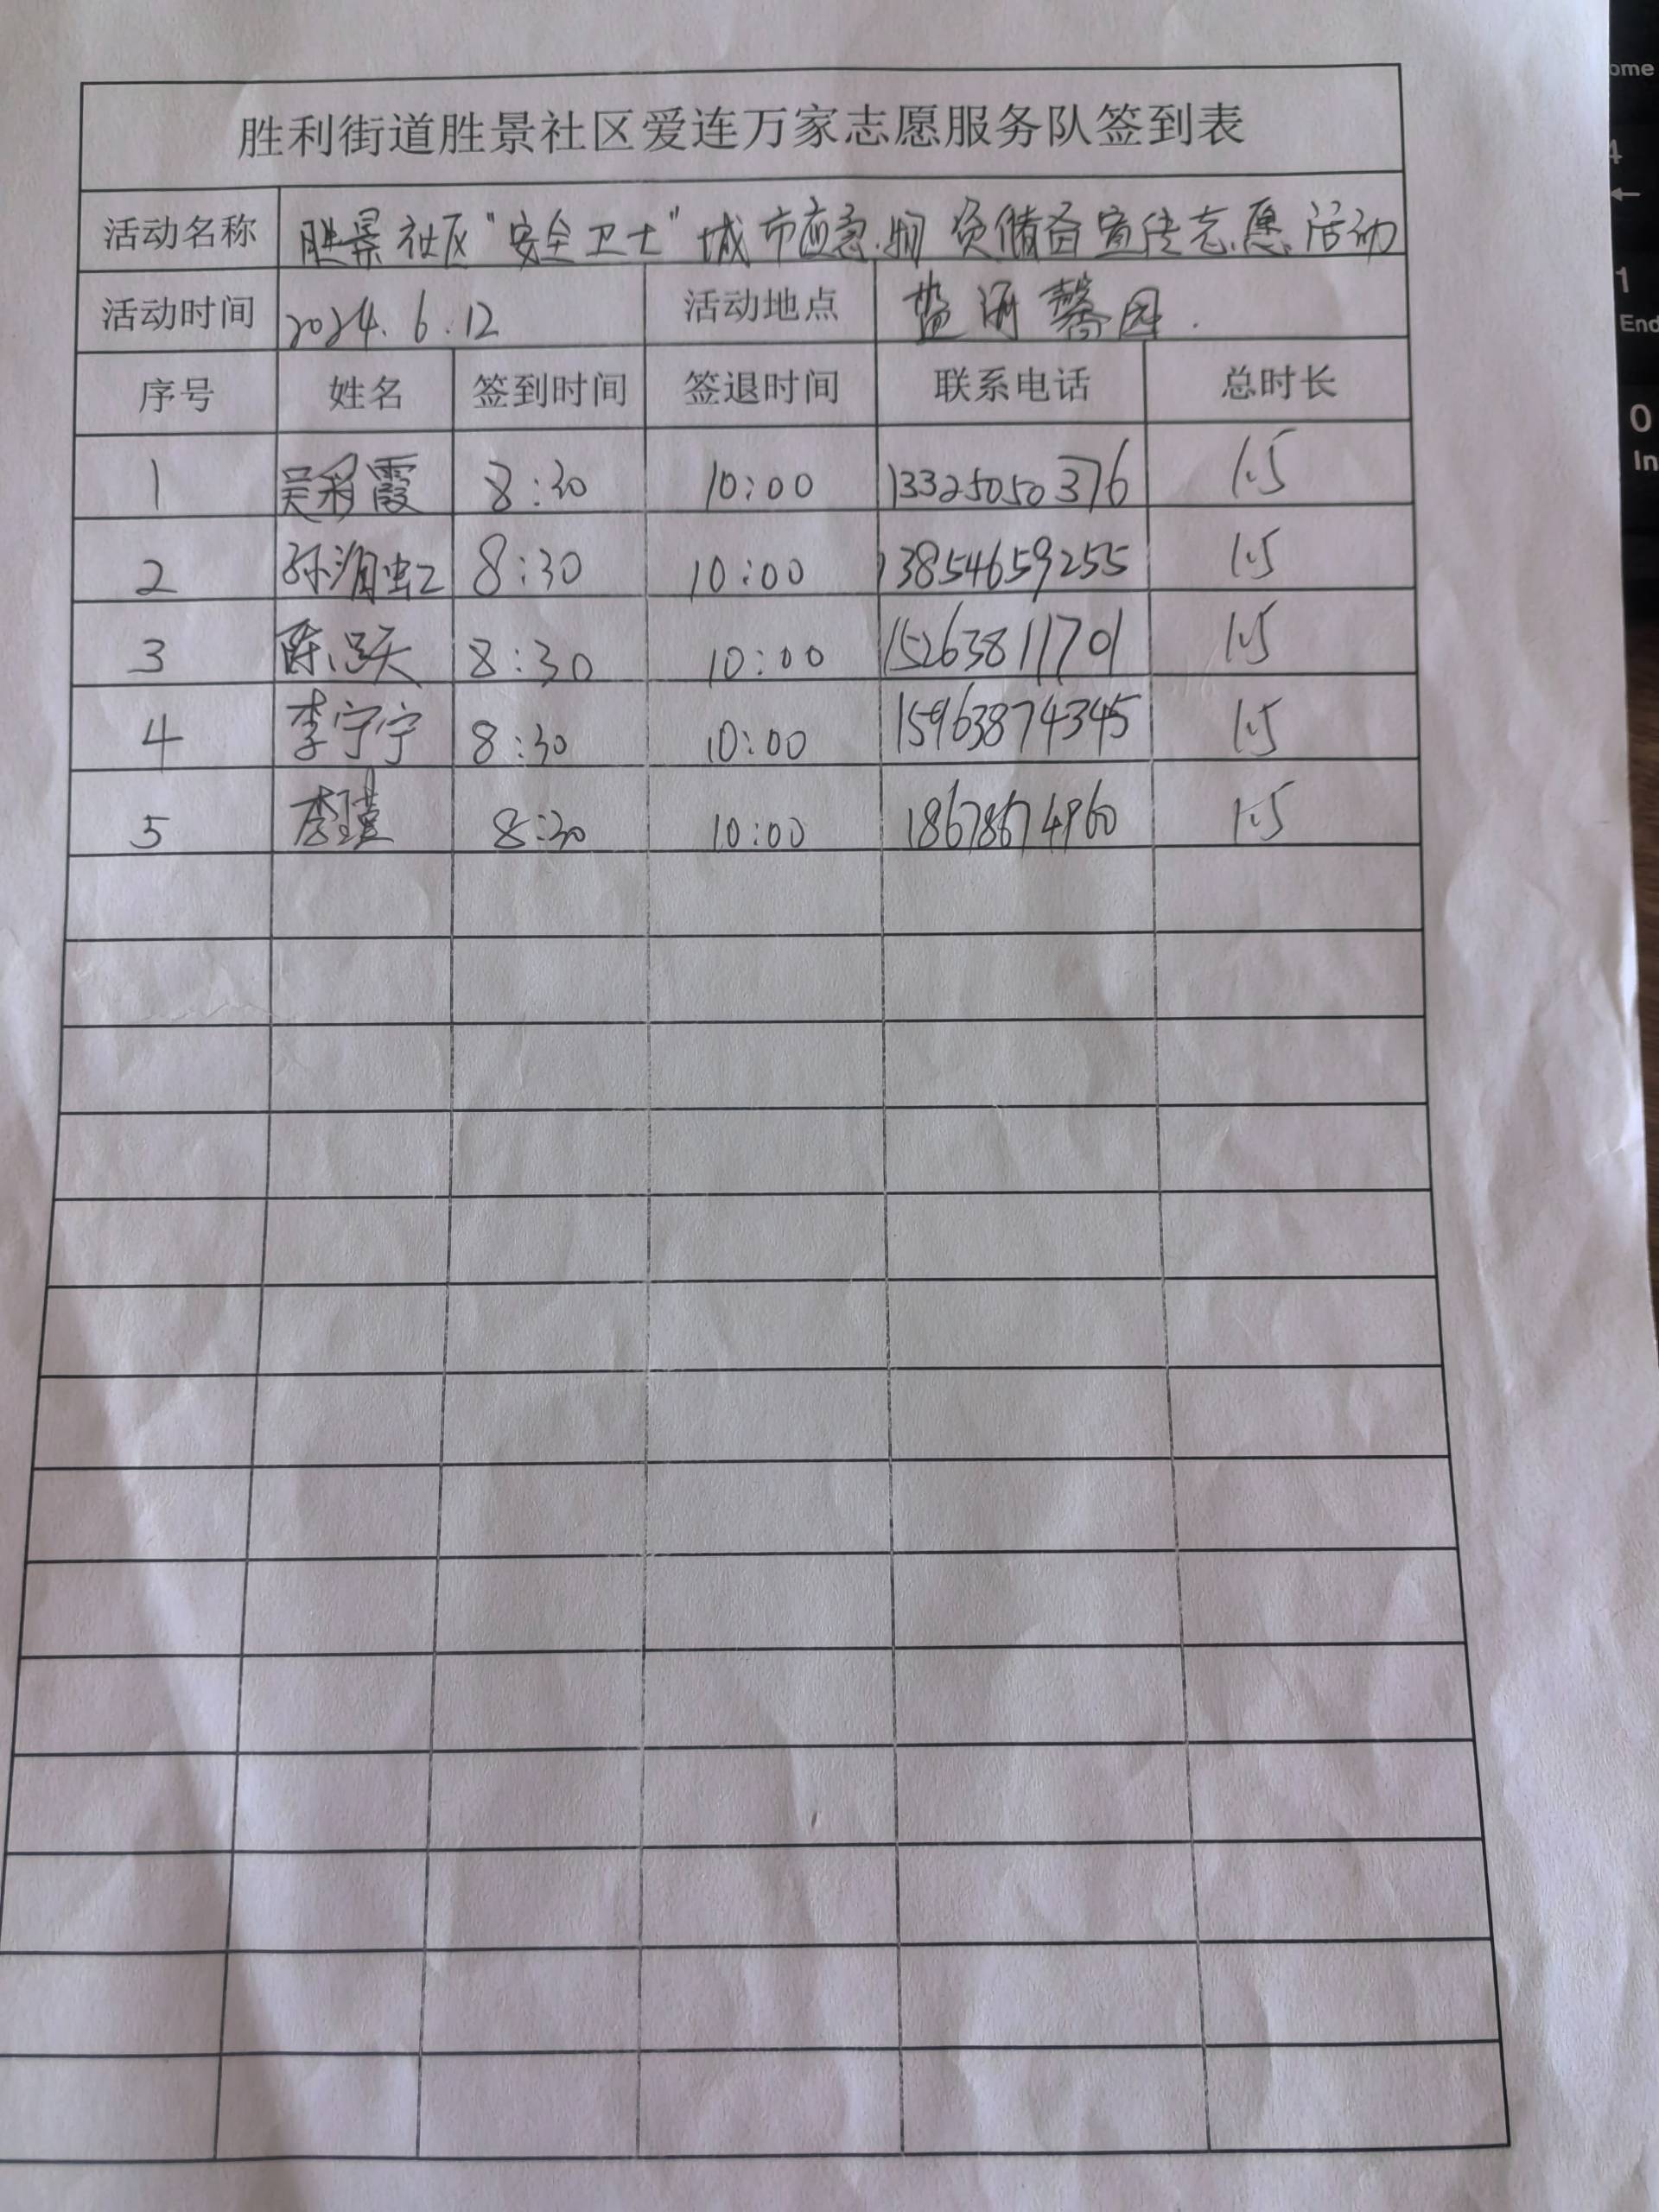 胜利街道胜景社区爱连万家志愿服务队签到表
活动名称 胜景社区"安全卫士"城市应急物资储备宣传志愿活动
活动时间 2024.6.12 活动地点 蓝海馨园.
序号 姓名 签到时间 签退时间 联系电话 总时长
1 吴彩霞 8:30 10:00 13325050376 1.5
2 孙海虹 8:30 10:00 13854659255 1.5
3 陈跃 8:30 10:00 15263811701 1.5
4 李宁宁 8:30 10:00 15963874345 1.5
5 李瑾 8:30 10:00 18678674960 1.5
ome
4
←
1
End
0
In